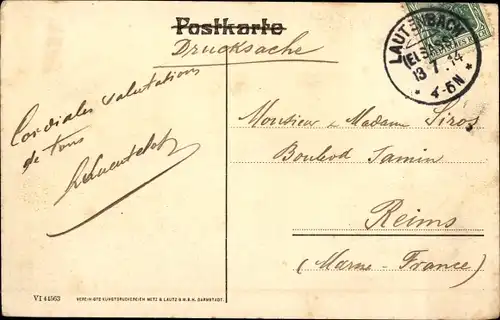 Postkarte
Drucksache
LAUTENBACH
(ELSASS)
13 7 14
* 4-5N *
Cordiales salutations
de tous
Monsieur & Madame Siros
Boulevd Jamin
Reims
(Marne - France)
VI 44563
VEREINIGTE KUNSTDRUCKEREIEN METZ & LAUTZ G.M.B.H. DARMSTADT.